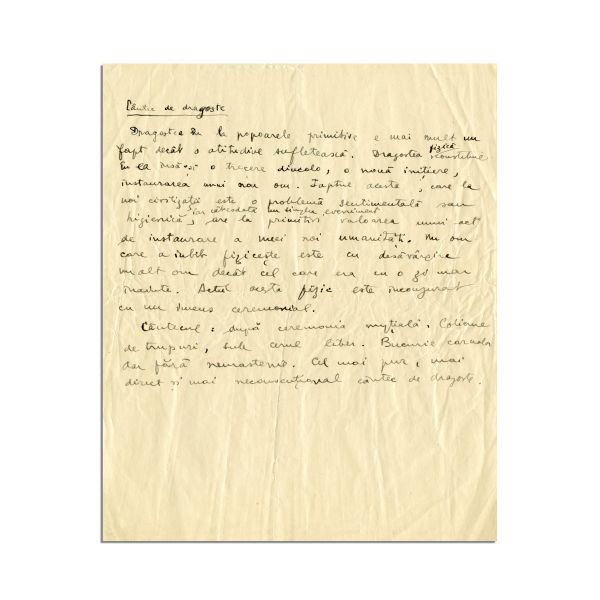 Cântec de dragoste
Dragostea la popoarele primitive e mai mult un
fapt decât o atitudine sufletească. Dragostea fizică constitue
în ea însă-și o trecere dincolo, o nouă inițiere,
instaurarea unui nou om. Faptul acesta, care la
noi civilizații este o problemă sentimentală sau
iar câteodată un simplu eveniment
higienică, are la primitivi valoarea unui act
de instaurare a unei noi umanități. Un om
care a iubit fizicește este cu desăvârșire
un alt om decât cel care era cu o zi mai
înainte. Actul acesta fizic este inaugurat
cu un imens ceremonial.
Cântecul: după ceremonia nupțială.
de trupuri, sub cerul liber. Bucurie
dar fără neurastenie. Cel mai pur, mai
direct și mai neconvențional cântec de dragoste.